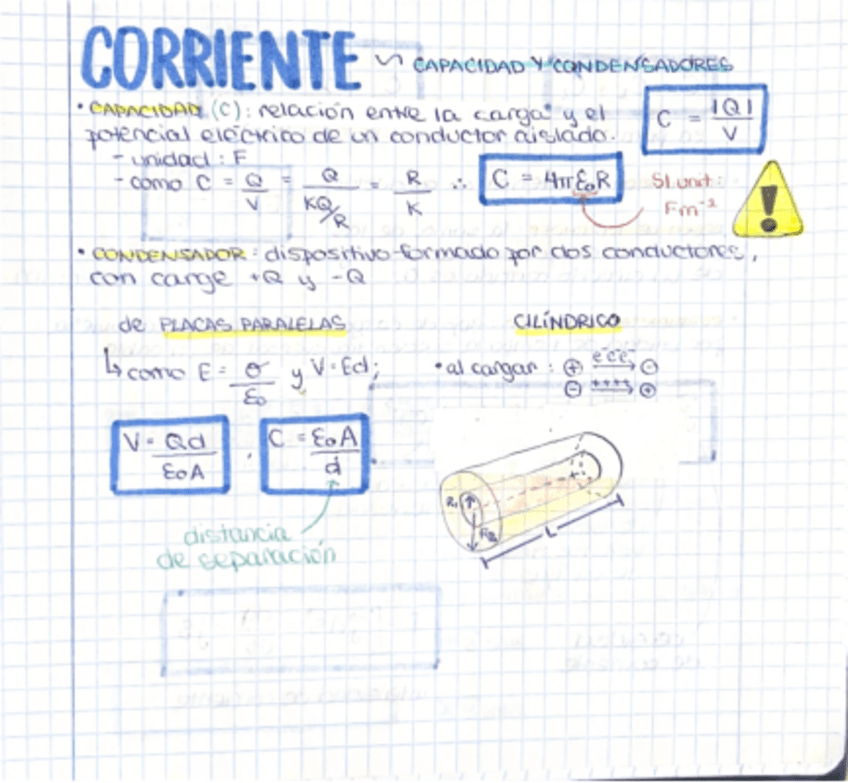 CORRIENTE ~ CAPACIDAD Y CONDENSADORES
• CAPACIDAD (C): relación entre la carga y el
potencial eléctrico de un conductor aislado.
C = |Q| / V
- unidad : F
- como C = Q/V = Q/(KQ/R) = R/K ∴ C = 4πε₀R
SI unit:
Fm⁻¹
• CONDENSADOR: dispositivo formado por dos conductores,
con carge +Q y -Q
de PLACAS PARALELAS
↳ como E = σ/ε₀ y V=Ed;
V = Qd/ε₀A , C = ε₀A/d
distancia
de separación
CILÍNDRICO
• al cargar : ⊕ e⁻e⁻e⁻→ ⊖
⊖ ++++→ ⊕
R₁
R₂
L